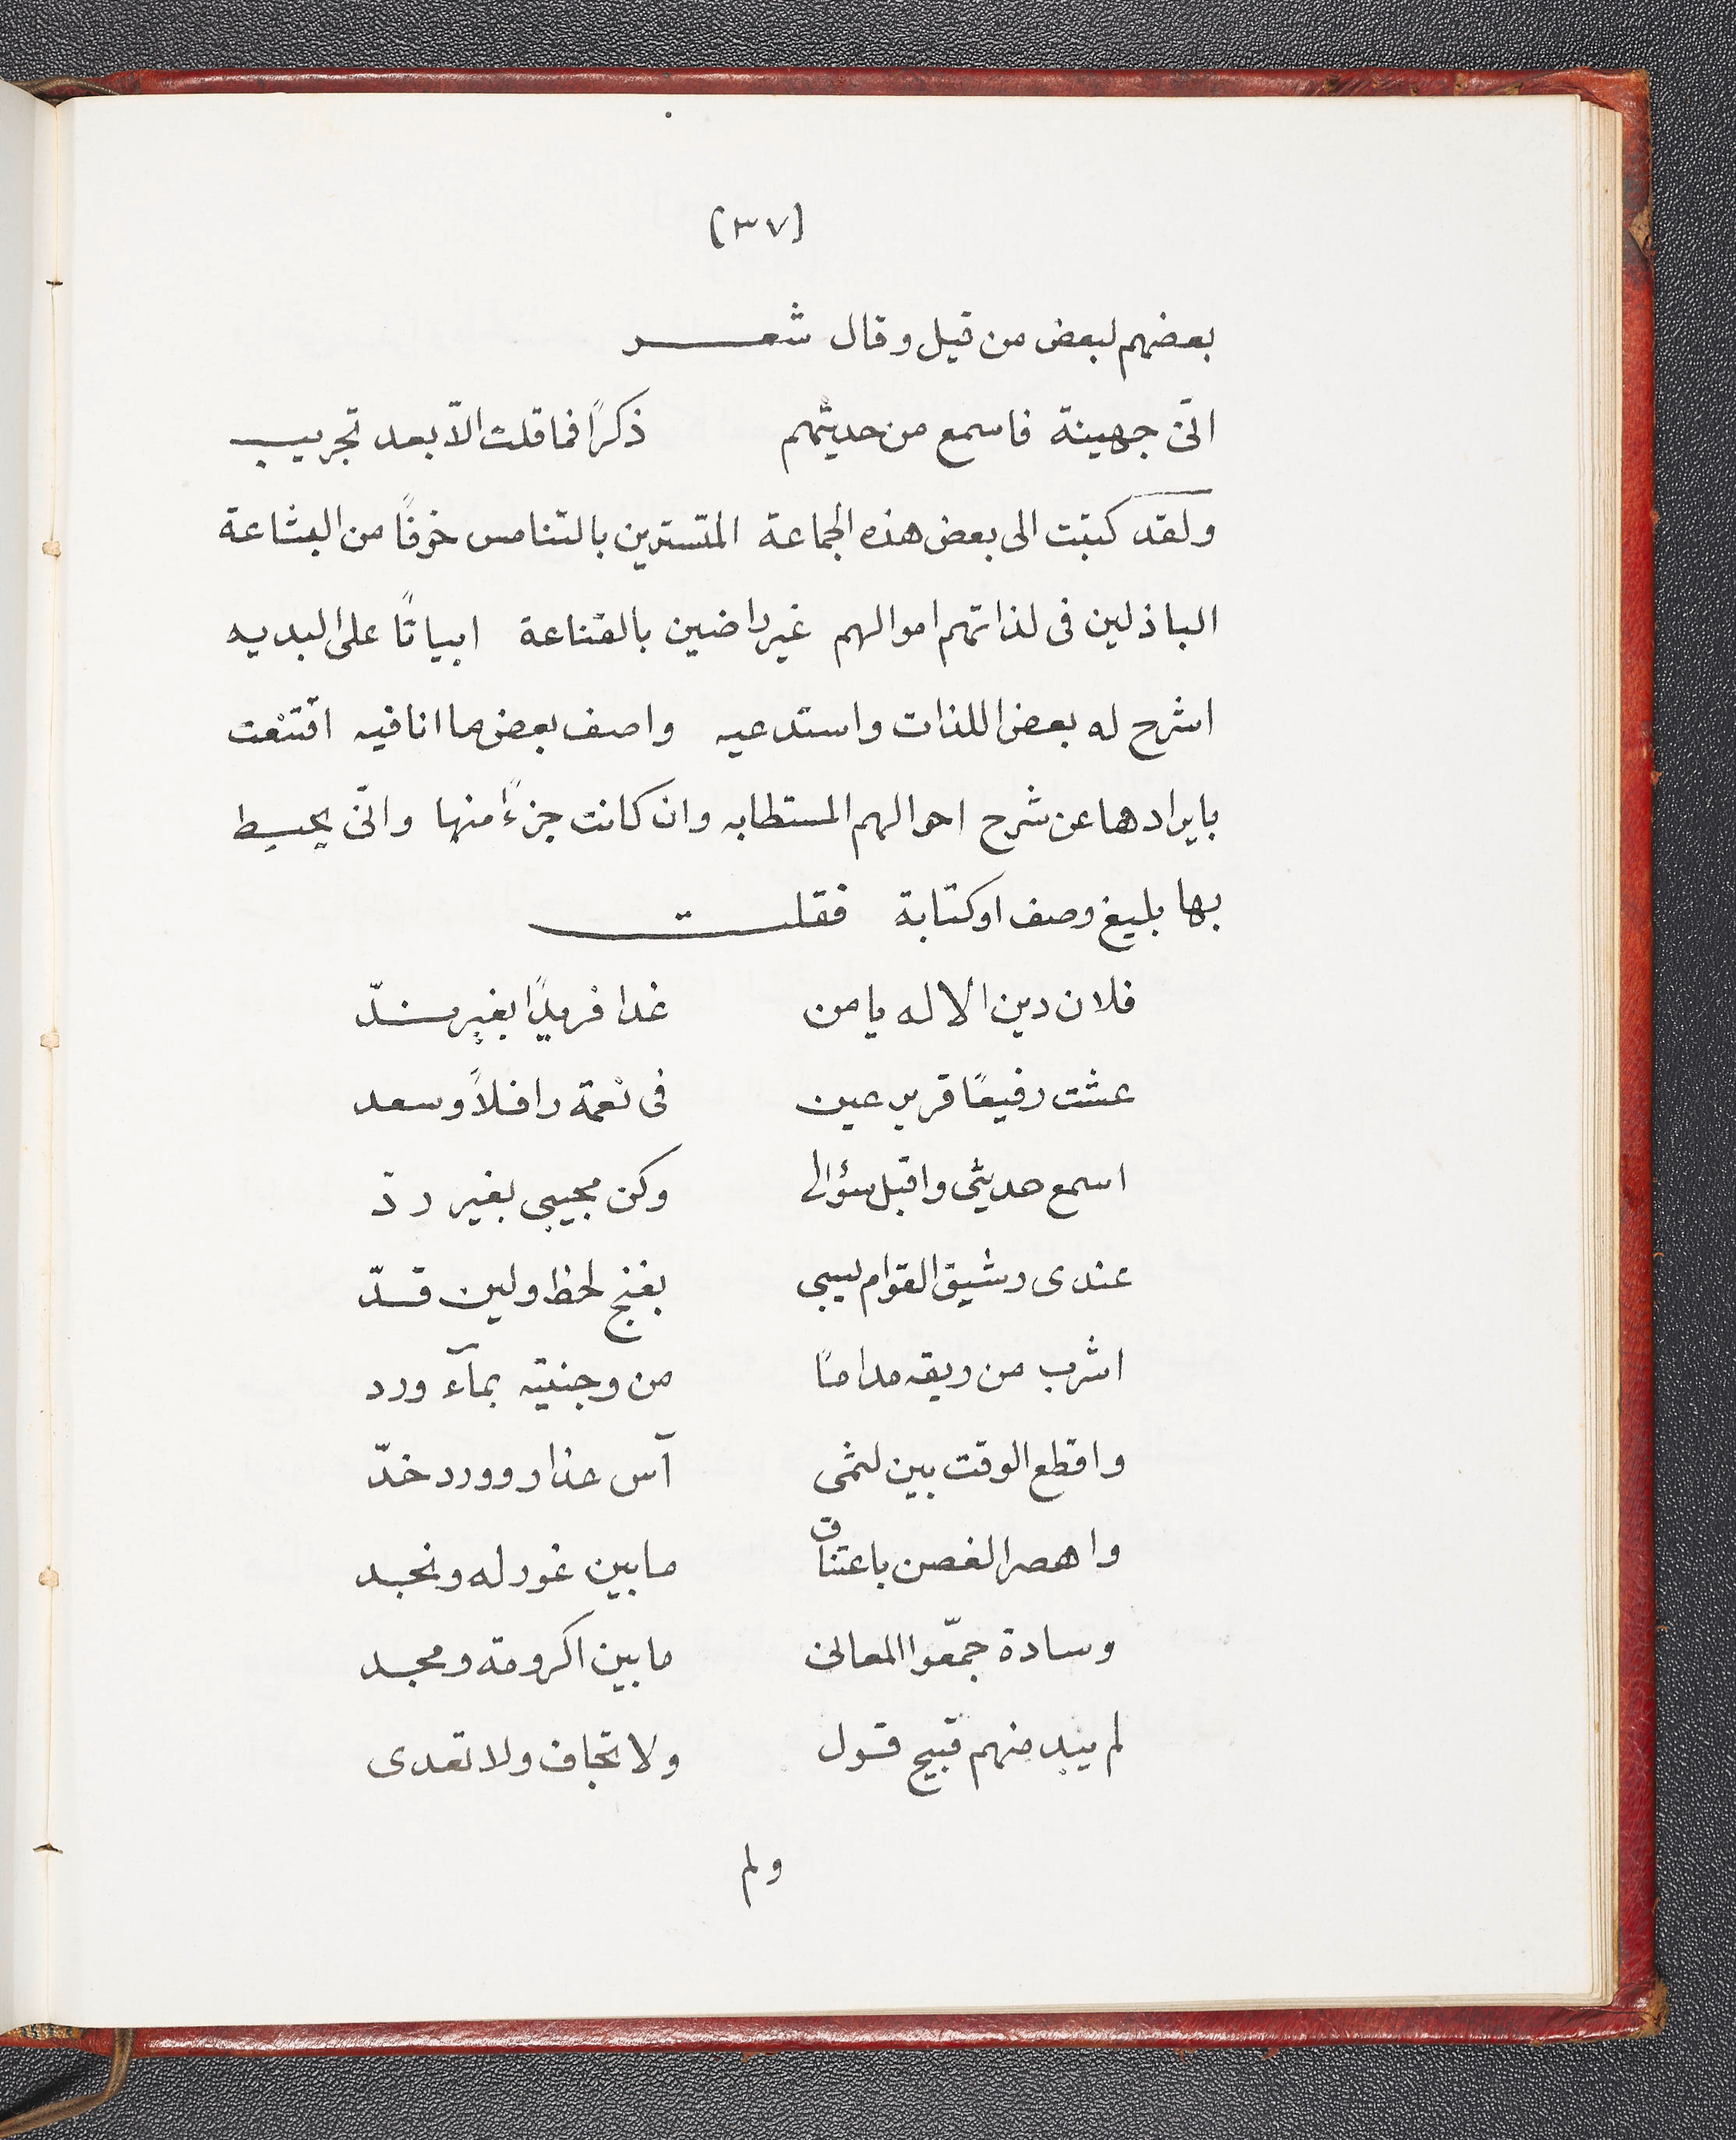 (٣٧)
بعضهم لبعض من قيل وقال شعر
انّى جهينة فاسمع من حديثهم ذكرًا فما قلت الاّ بعد تجريب
ولقد كتبت الى بعض هذه الجماعة المتسترين بالتنامس خوفًا من البشاعة
الباذلين فى لذاتهم اموالهم غير راضين بالقناعة ابياتًا على البديه
اشرح له بعض اللذات واستدعيه واصف بعض ما انا فيه اقتنعت
بايرادها عن شرح احوالهم المستطابه وان كانت جزءًا منها وانّى يحيط
بها بليغ وصف او كتابة فقلت
فلان دين الاله يا من غدا فريدًا بغير ندّ
عشت رفيعًا قرير عين فى نعمة رافلاً وسعد
اسمع حديثى واقبل سؤالى وكن مجيبى بغير ردّ
عندى رشيق القوام يسبى بغنج لحظ ولين قدّ
اشرب من ريقه مدامًا من وجنتيه بمآء ورد
واقطع الوقت بين لثمى آس عذار وورد خدّ
واهصر الغصن باعتناق ما بين غور له ونجد
وسادة جمّعوا المعالى ما بين اكرومة ومجد
لم يبد منهم قبيح قول ولا تجاف ولا تعدى
ولم